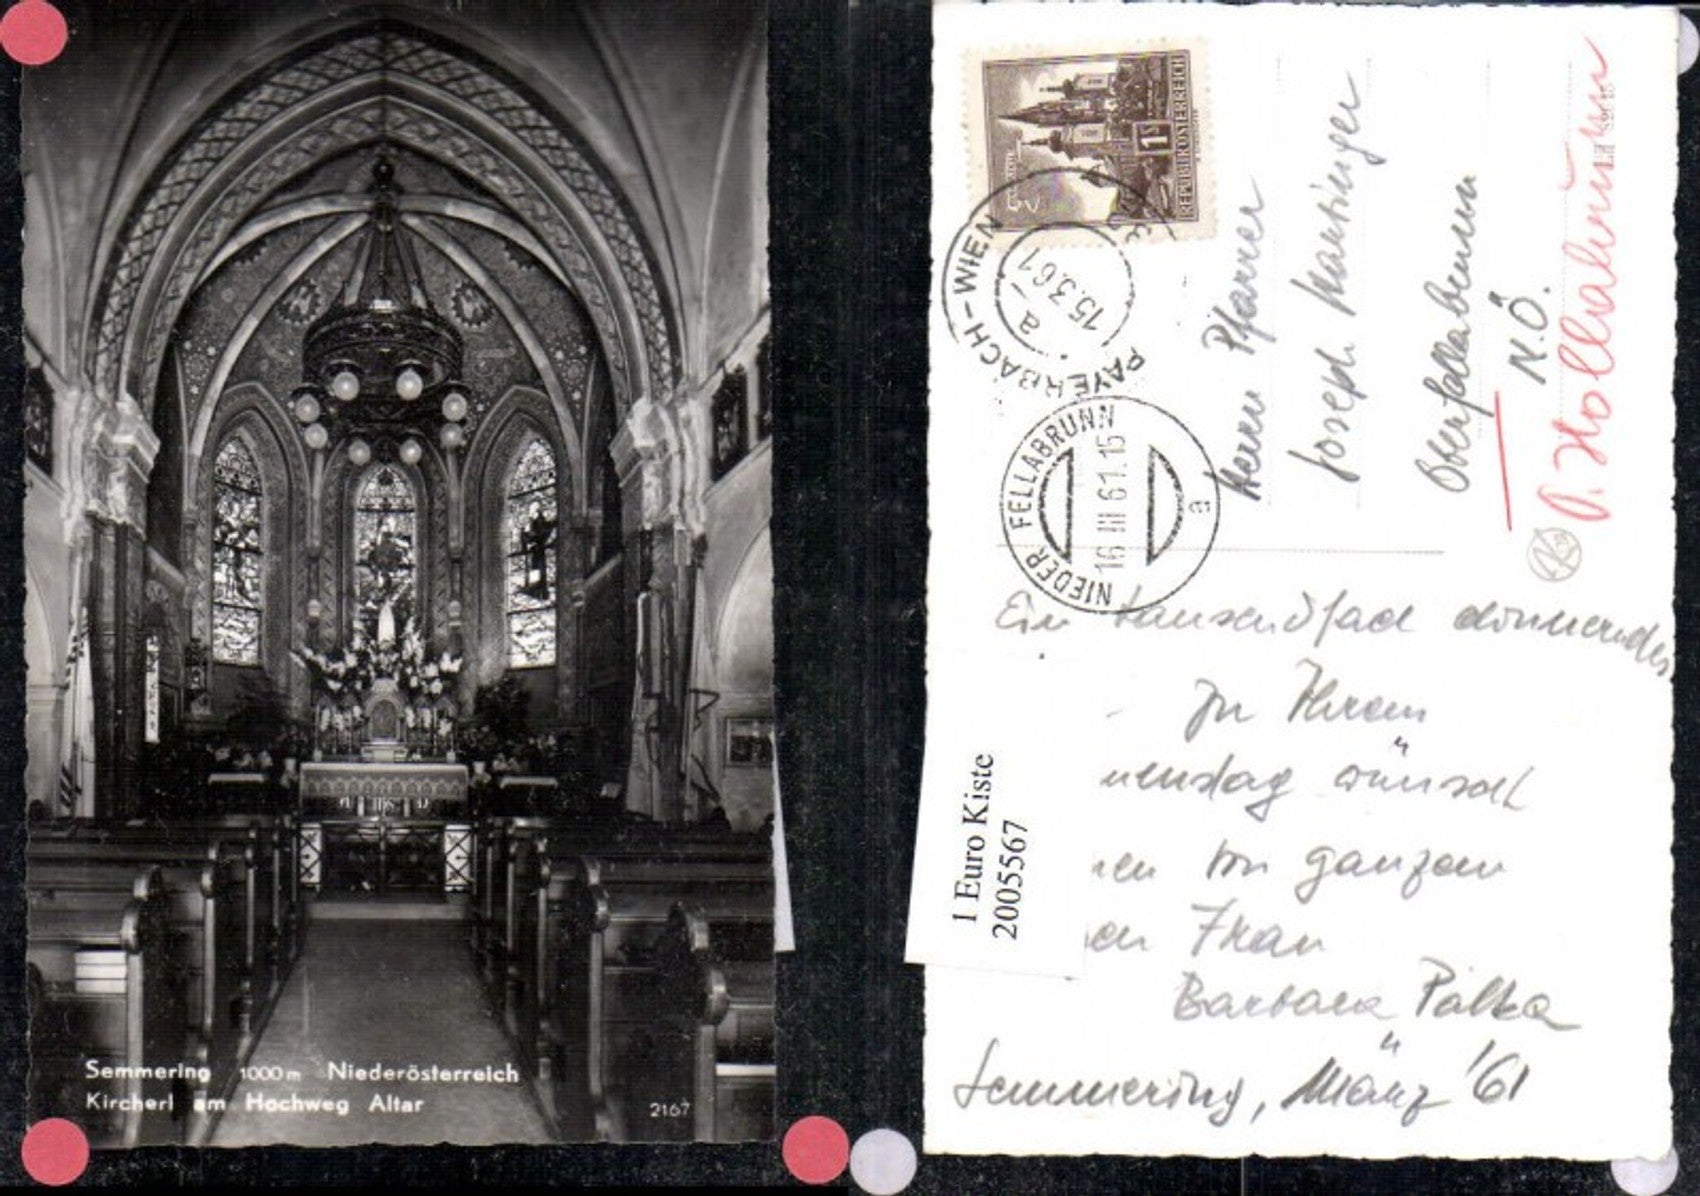 Semmering 1000 m Niederösterreich
Kircherl am Hochweg Altar
2167
REPUBLIK ÖSTERREICH
PAYERBACH-WIEN
a
15.3.61
NIEDER FELLABRUNN
16.III 61.15
a
Herrn Pfarrer
Joseph
Oberfellabrunn
N.Ö.
Hollabrunn
Ein tausendfach donnerndes
zu Ihrem
menstag wünscht
nen von ganzem
en Frau
Barbara Palka
Semmering, März '61
1 Euro Kiste
2005567